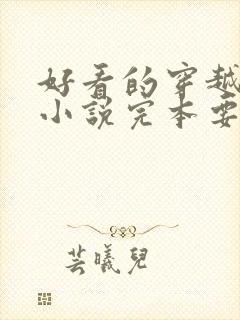 好看的穿越
小说完本要
芸曦儿